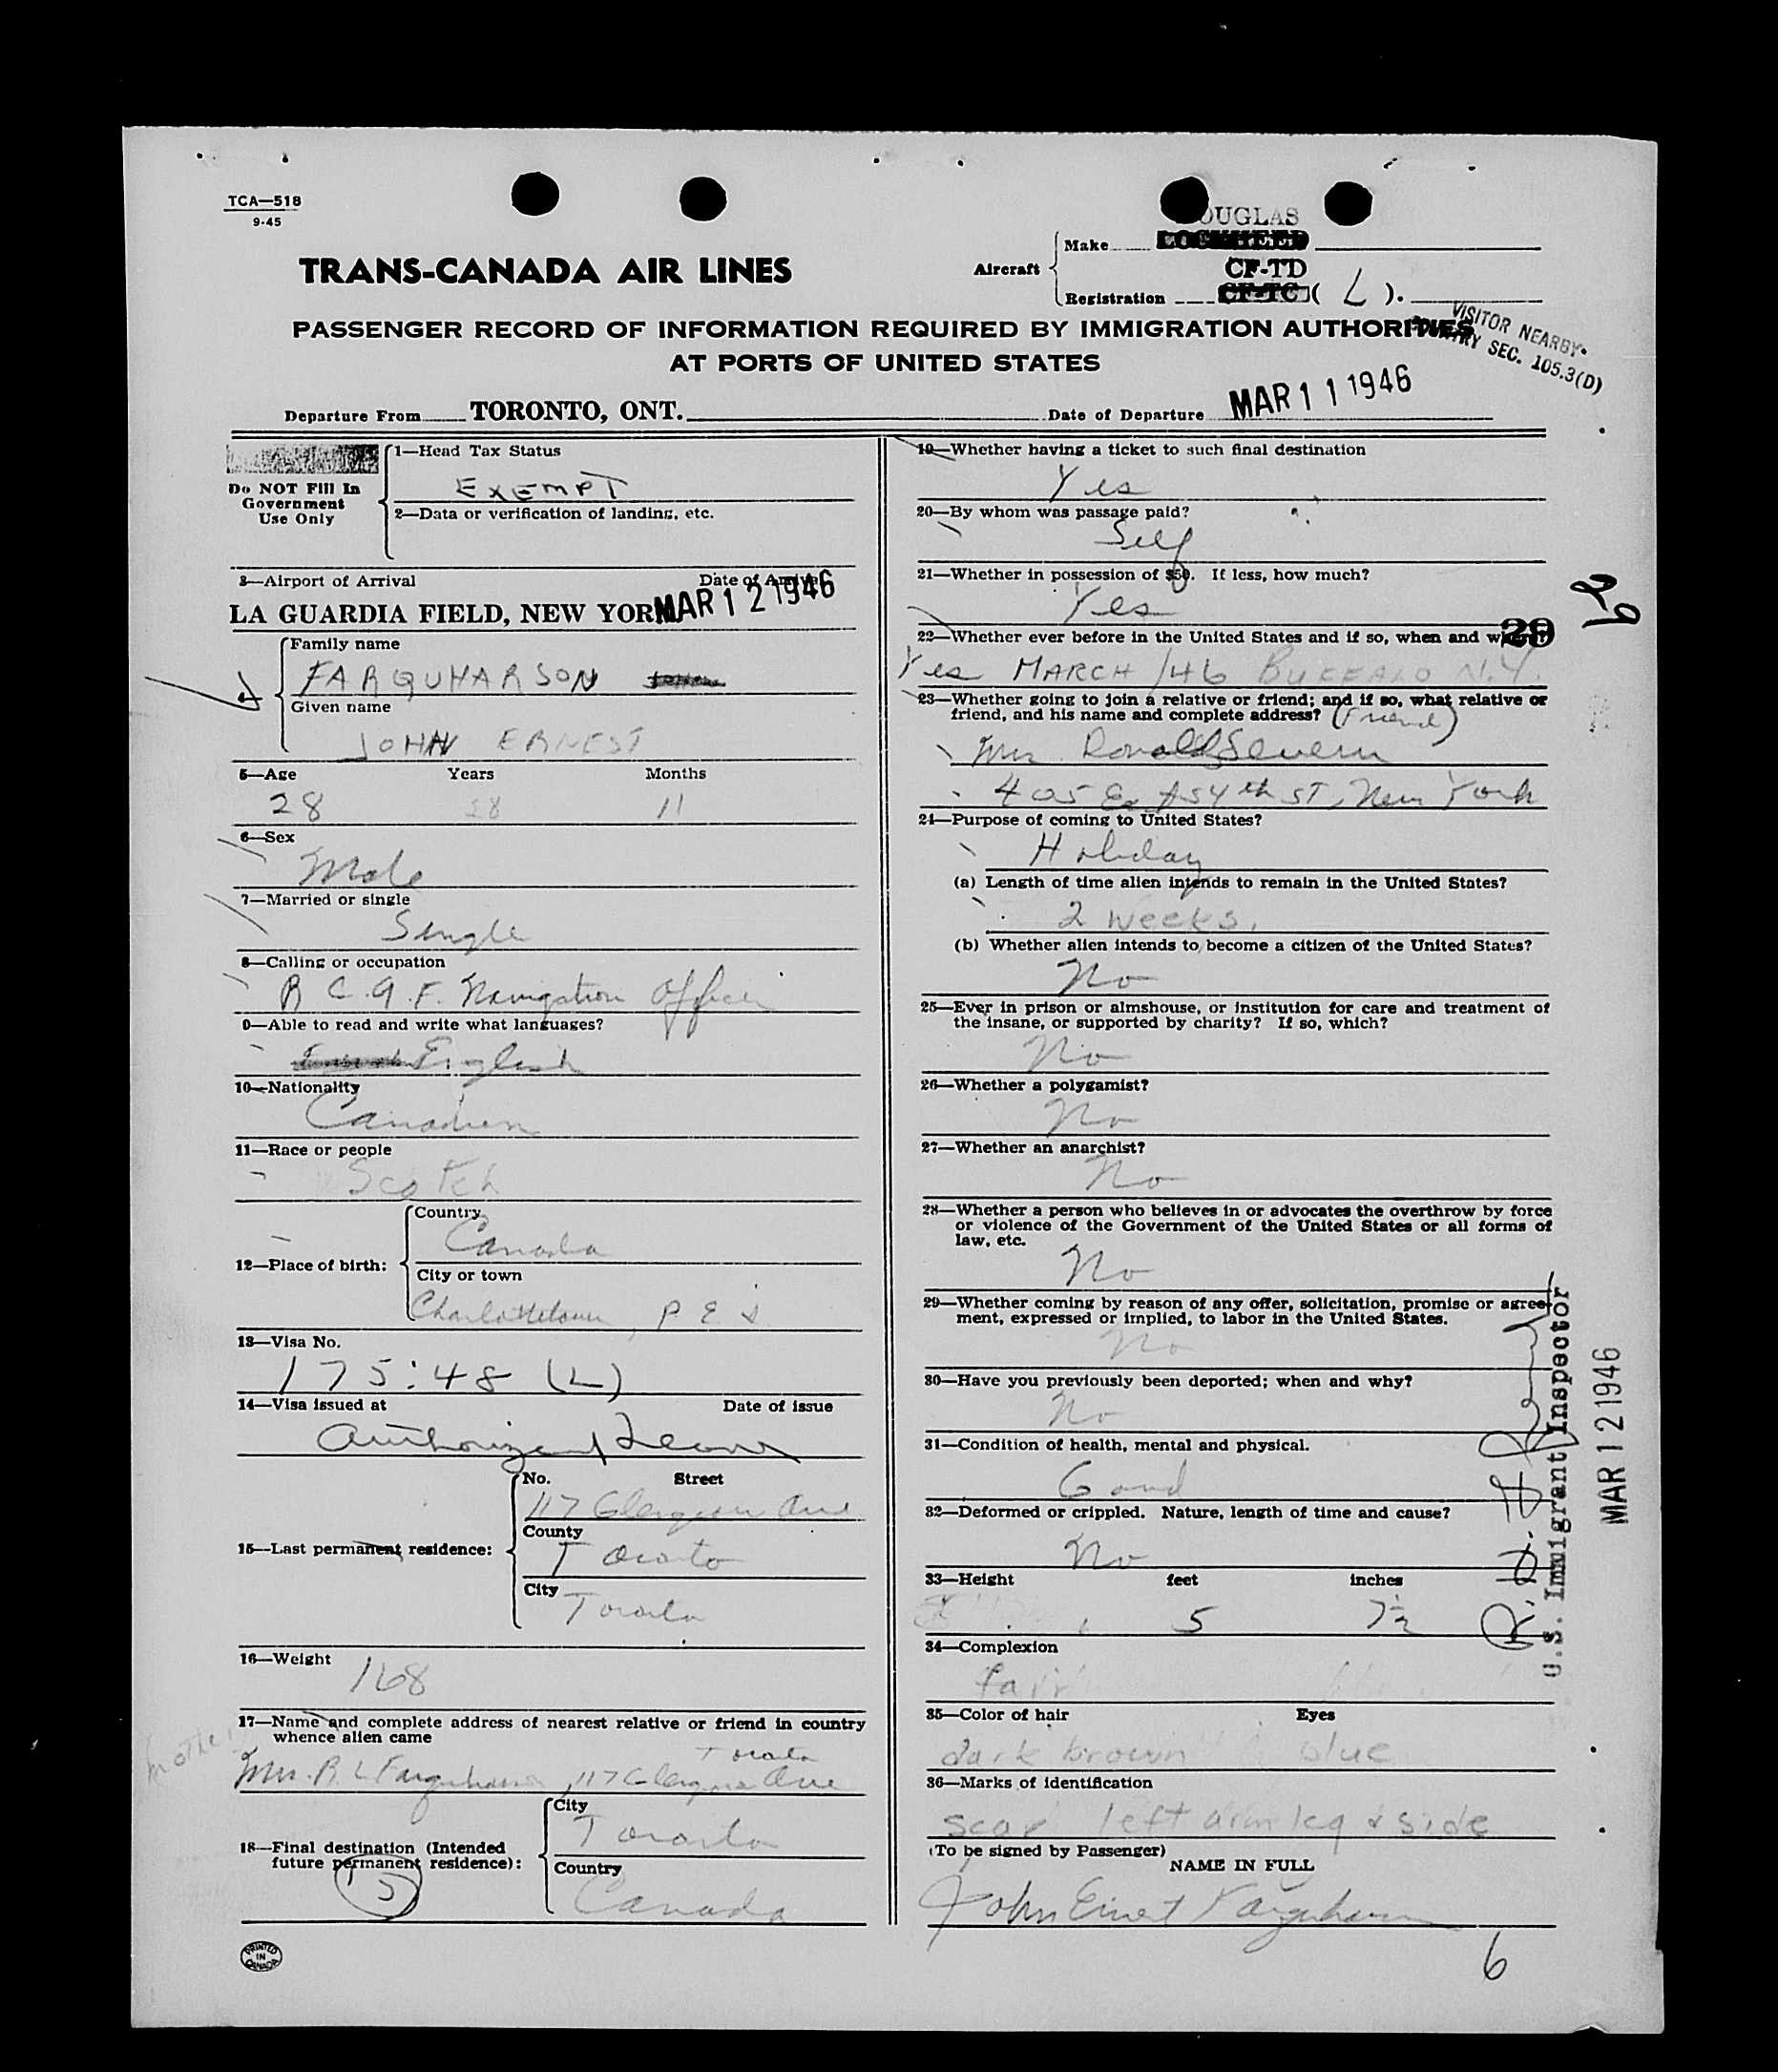 TCA—518
9-45
OUGLAS
Make
TRANS-CANADA AIR LINES
Aircraft
CF-TD
Registration CF-TC ( L ).
VISITOR NEARBY
PASSENGER RECORD OF INFORMATION REQUIRED BY IMMIGRATION AUTHORITIES
SEC. 105.3(D)
AT PORTS OF UNITED STATES
Departure From TORONTO, ONT. Date of Departure MAR 11 1946
Do NOT Fill In
Government
Use Only
1—Head Tax Status
EXEMPT
2—Data or verification of landing, etc.
3—Airport of Arrival Date of Arrival
LA GUARDIA FIELD, NEW YORK MAR 12 1946
Family name
FARQUHARSON
Given name
JOHN ERNEST
5—Age Years Months
28 28 11
6—Sex
Male
7—Married or single
Single
8—Calling or occupation
R.C.A.F. Navigation Officer
9—Able to read and write what languages?
English
10—Nationality
Canadian
11—Race or people
Scotch
12—Place of birth:
Country
Canada
City or town
Charlottetown, P E I
13—Visa No.
175:48 (L)
14—Visa issued at Date of issue
Authorized Leave
15—Last permanent residence:
No. Street
117 Ave
County
Toronto
City
Toronto
16—Weight
168
17—Name and complete address of nearest relative or friend in country
whence alien came
mother
Toronto
Mrs. R L Farquharson, 117 Ave
18—Final destination (Intended
future permanent residence):
5
City
Toronto
Country
Canada
PRINTED
IN
CANADA
19—Whether having a ticket to such final destination
Yes
20—By whom was passage paid?
Self
21—Whether in possession of $50. If less, how much?
Yes
29
29
22—Whether ever before in the United States and if so, when and where?
Yes MARCH /46 BUFFALO N.Y.
23—Whether going to join a relative or friend; and if so, what relative or
friend, and his name and complete address? (Friend)
Mrs Ronald Severn
405 E 54th ST, New York
24—Purpose of coming to United States?
Holiday
(a) Length of time alien intends to remain in the United States?
2 weeks.
(b) Whether alien intends to become a citizen of the United States?
No
25—Ever in prison or almshouse, or institution for care and treatment of
the insane, or supported by charity? If so, which?
No
26—Whether a polygamist?
No
27—Whether an anarchist?
No
28—Whether a person who believes in or advocates the overthrow by force
or violence of the Government of the United States or all forms of
law, etc.
No
29—Whether coming by reason of any offer, solicitation, promise or agree-
ment, expressed or implied, to labor in the United States.
No
30—Have you previously been deported; when and why?
No
31—Condition of health, mental and physical.
Good
32—Deformed or crippled. Nature, length of time and cause?
No
33—Height feet inches
5 7½
34—Complexion
fair
35—Color of hair Eyes
dark brown blue
36—Marks of identification
scar left arm leg & side
(To be signed by Passenger)
NAME IN FULL
John Ernest Farquharson
6
U.S. Immigrant Inspector
MAR 12 1946